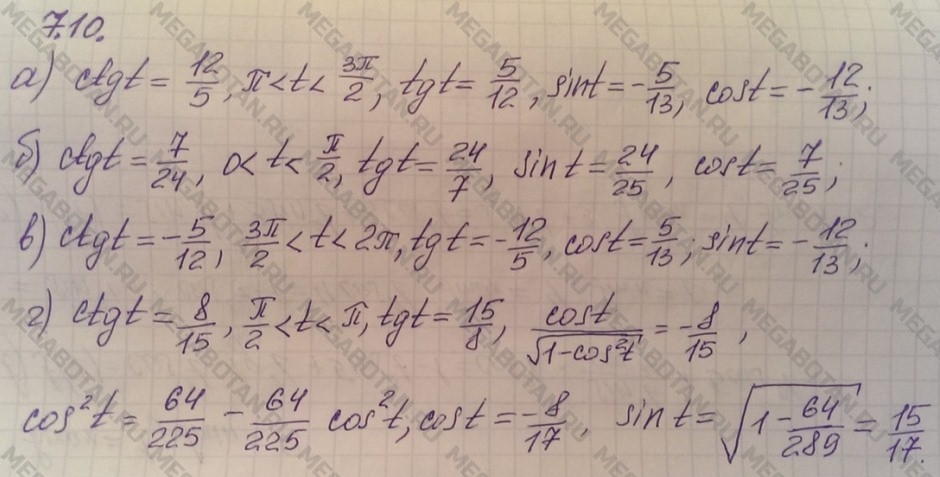 7.10.
а) ctgt = 12/5, π<t<3π/2, tgt = 5/12, sint = -5/13, cost = -12/13;
б) ctgt = 7/24, 0<t<π/2, tgt = 24/7, sint = 24/25, cost = 7/25;
в) ctgt = -5/12, 3π/2<t<2π, tgt = -12/5, cost = 5/13; sint = -12/13;
г) ctgt = 8/15, π/2<t<π, tgt = 15/8, cost/√(1-cos²t) = -8/15,
cos²t = 64/225 - 64/225 cos²t, cost = -8/17, sint = √(1-64/289) = 15/17.
MEGABOTAN.RU